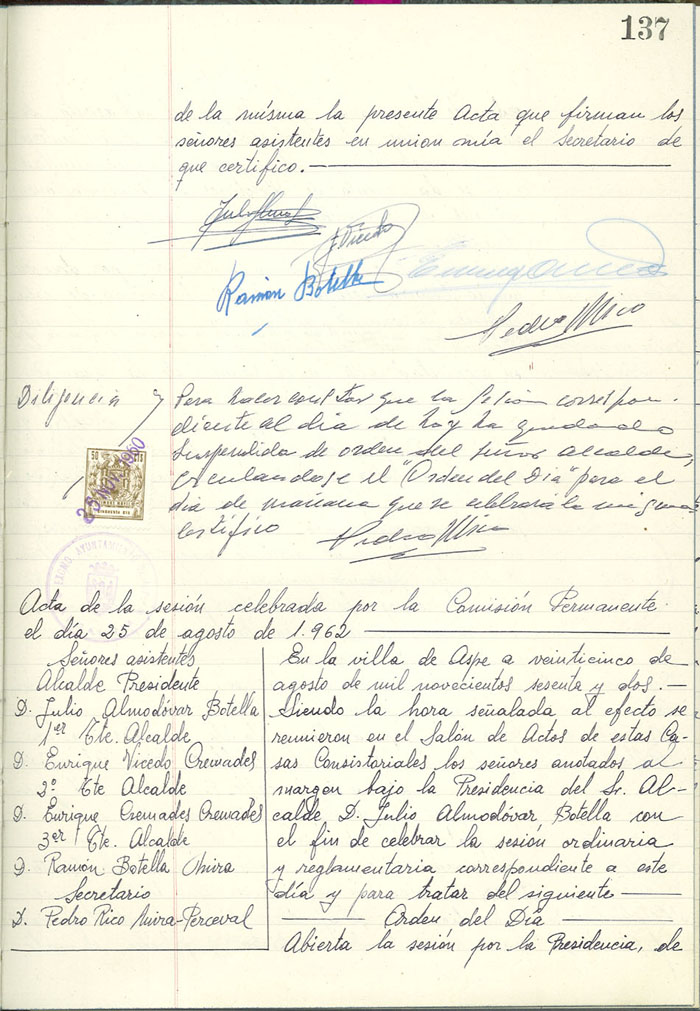 137
de la misma la presente Acta que firman los
señores asistentes en union mía el Secretario de
que certifico.
Ramón Botella
Pedro Rico
Diligencia
Para hacer constar que la Sesion correspon-
diente al dia de hoy ha quedado
suspendida de orden del Señor Alcalde,
el "Orden del Dia" para el
dia de mañana que se celebrará la misma
Certifico
Pedro Rico
50 CTS
28 NOV. 1960
EXCMO. AYUNTAMIENTO
Acta de la sesión celebrada por la Comisión Permanente
el día 25 de agosto de 1.962
Señores asistentes
Alcalde Presidente
D. Julio Almodóvar Botella
1er Tte. Alcalde
D. Enrique Vicedo Cremades
2º Tte Alcalde
D. Enrique Cremades Cremades
3er Tte. Alcalde
D. Ramón Botella
Secretario
D. Pedro Rico Mira-Perceval
En la villa de Aspe a veinticinco de
agosto de mil novecientos sesenta y dos.-
Siendo la hora señalada al efecto se
reunieron en el Salón de Actos de estas Ca-
sas Consistoriales los señores anotados al
margen bajo la Presidencia del Sr. Al-
calde D. Julio Almodóvar Botella con
el fin de celebrar la sesión ordinaria
y reglamentaria correspondiente a este
día y para tratar del siguiente
Orden del Día
Abierta la sesión por la Presidencia, de